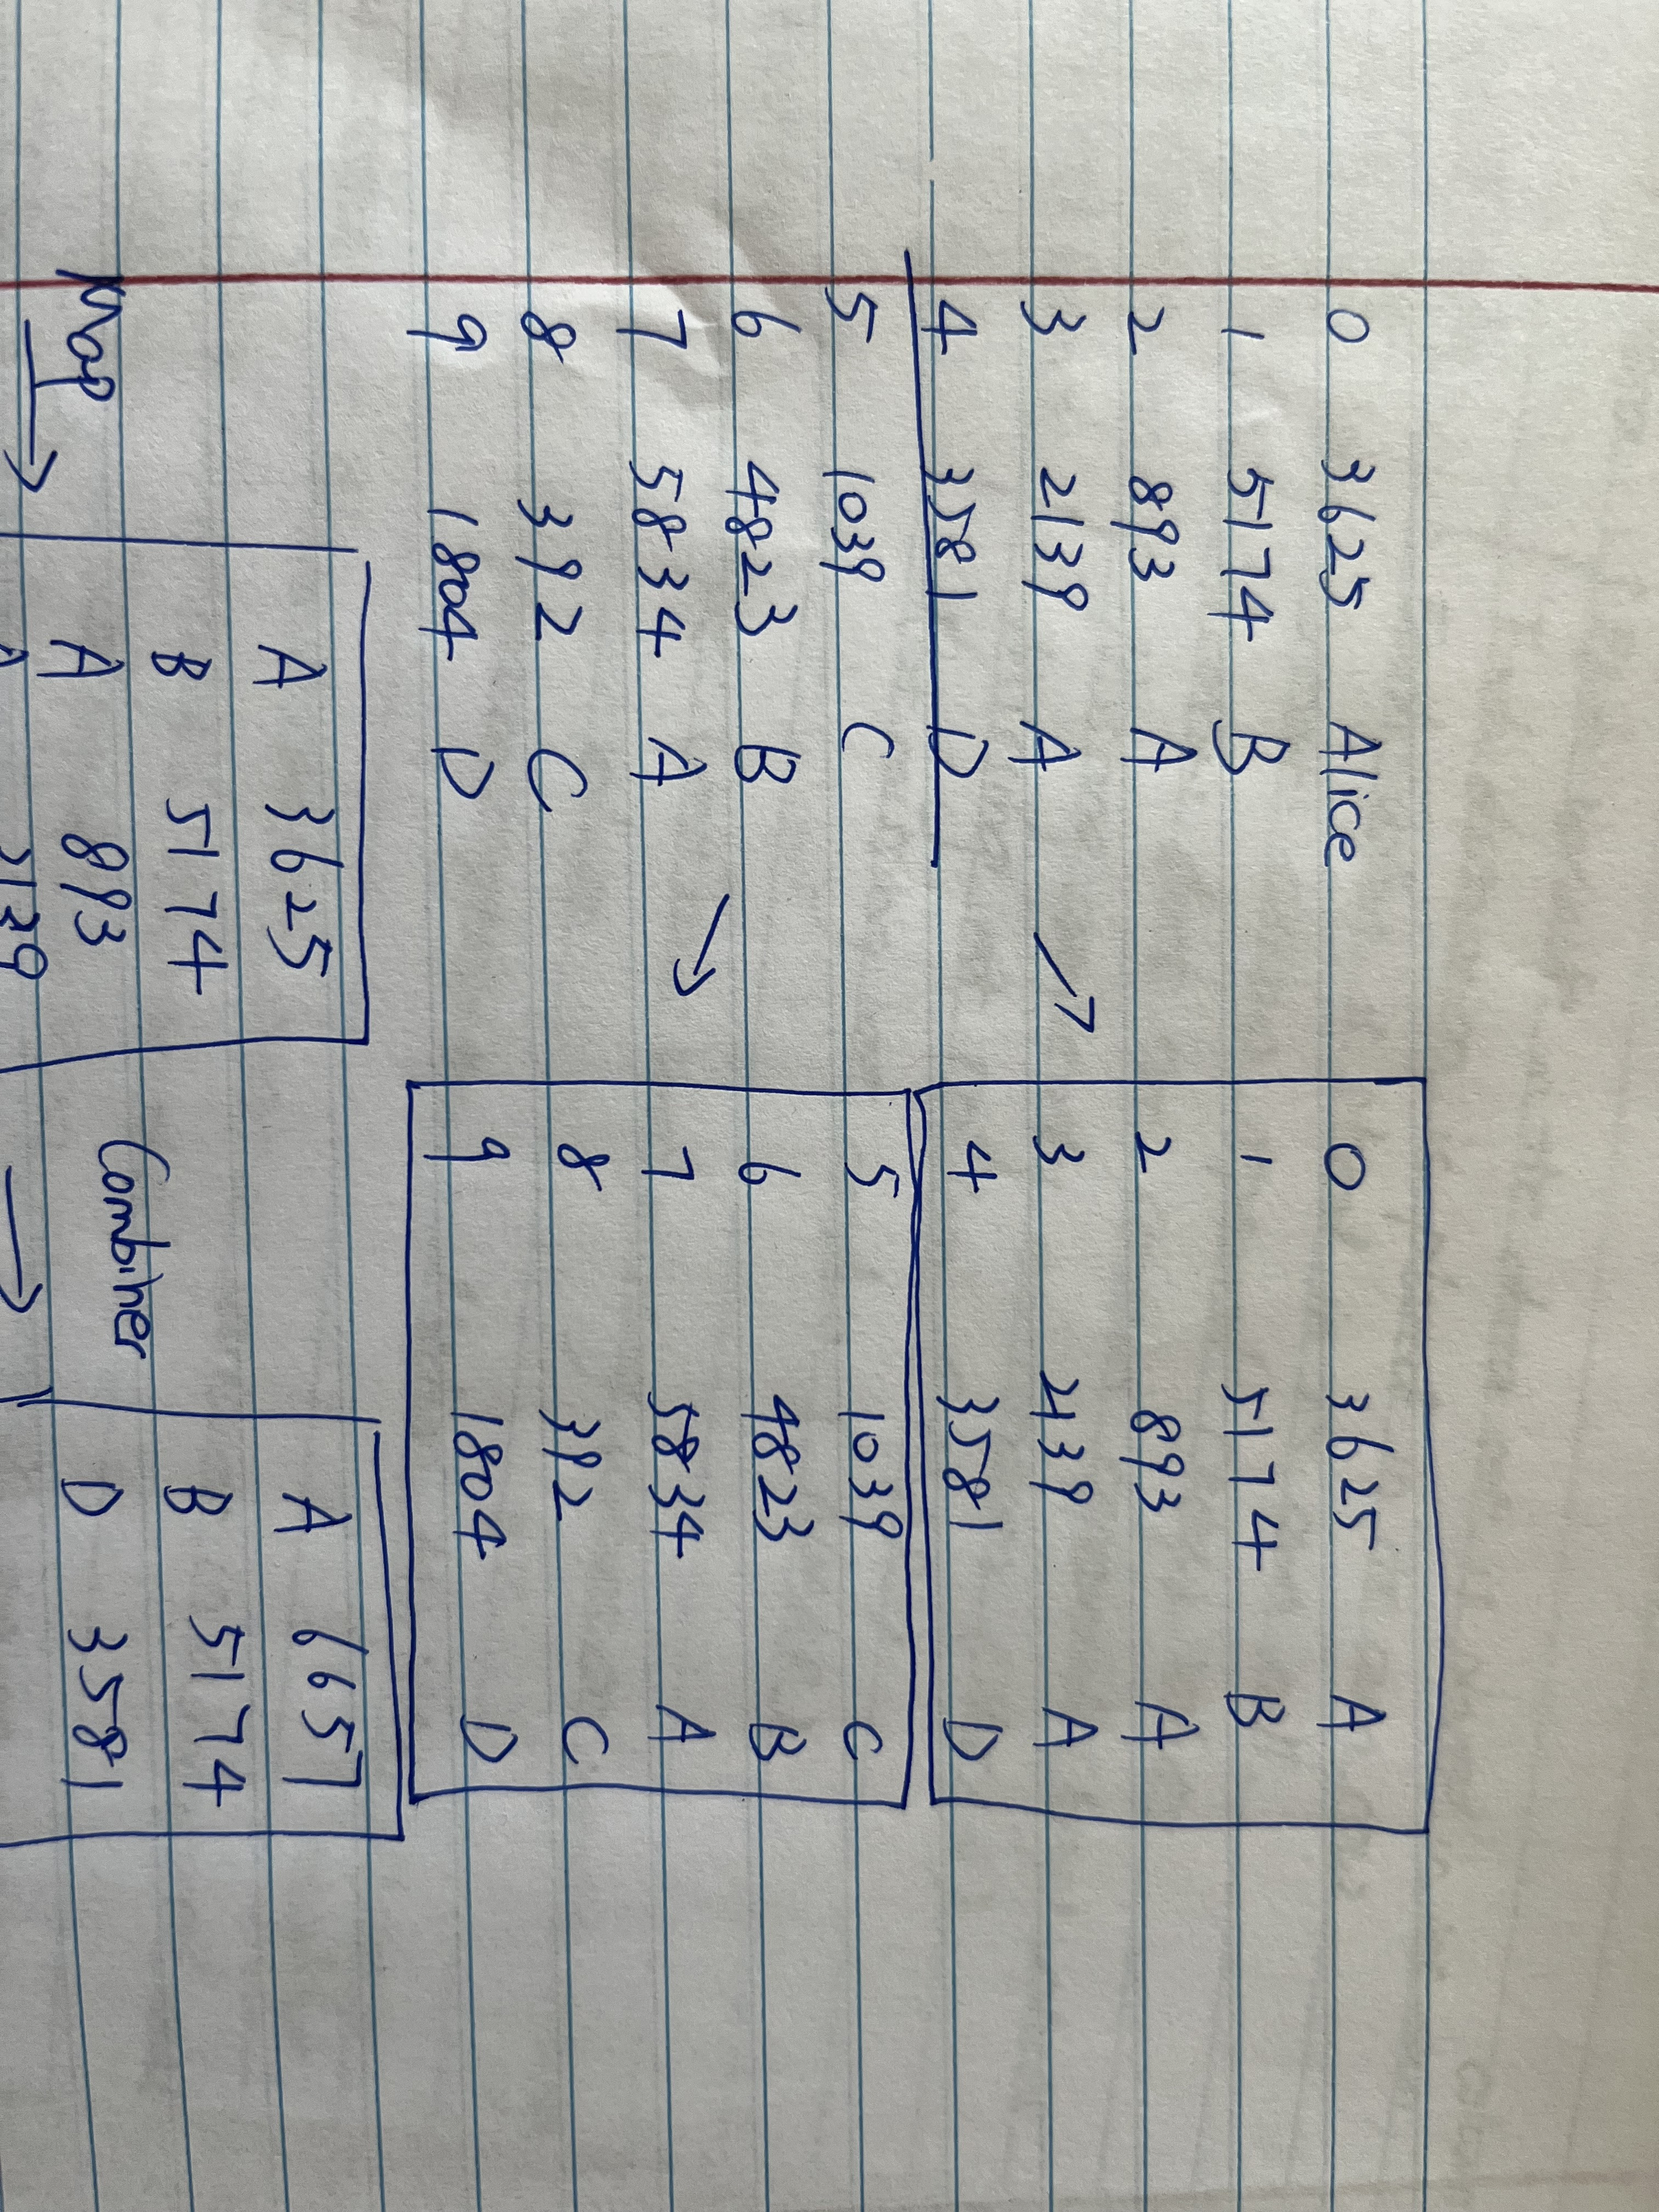 0 3625 Alice
1 5174 B
2 893 A
3 2139 A
4 3581 D
5 1039 C
6 4823 B
7 5834 A
8 392 C
9 1804 D
0 3625 A
1 5174 B
2 893 A
3 2139 A
4 3581 D
5 1039 C
6 4823 B
7 5834 A
8 392 C
9 1804 D
Map
A 3625
B 5174
A 893
A 2139
Combiner
A 6657
B 5174
D 3581